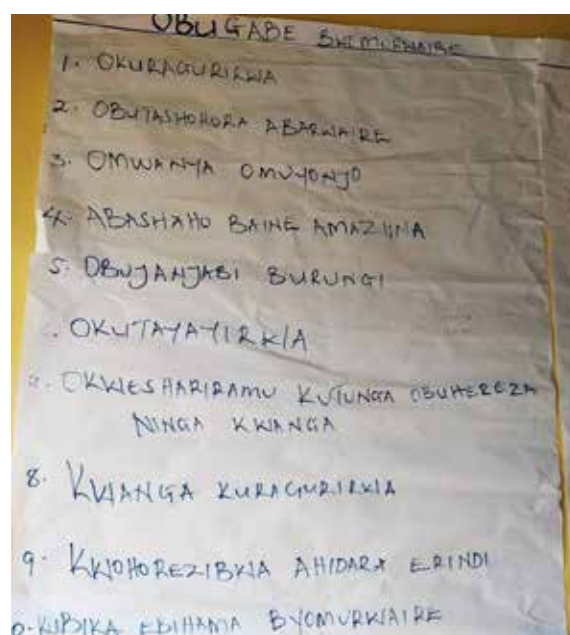 OBUGABE BW'OMURWAIRE
1. OKURAGURIRWA
2. OBUTASHOHORA ABARWAIRE
3. OMWANYA OMUYONJO
4. ABASHAHO BAINE AMAZIINA
5. OBUJANJABI BURUNGI
. OKUTAYAYIRWA
OKWESHARIRAMU KUTUNGA OBUHEREZA
NINGA KWANGA
8. KWANGA KURAGURIRWA
9. KWOHOREZIBWA AHIDARA ERINDI
KUBIKA EBIHAMA BYOMURWAIRE